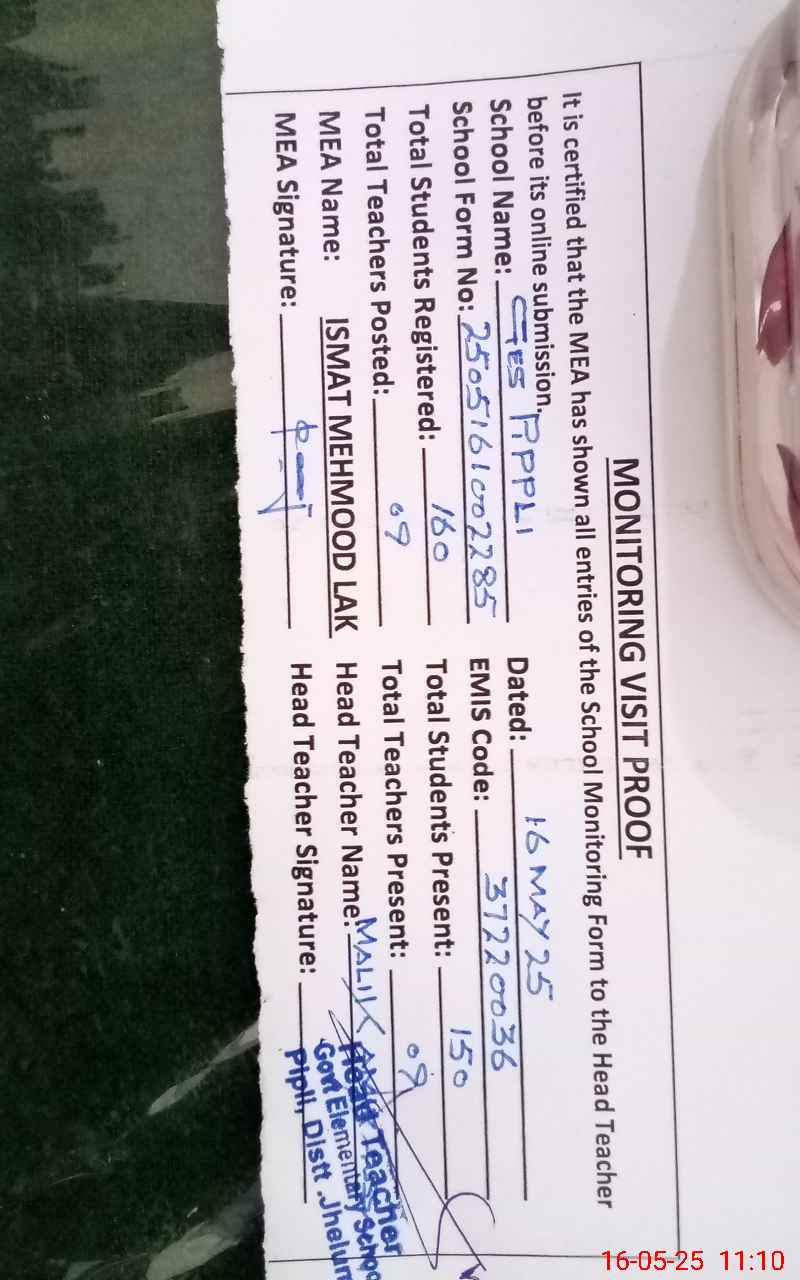 MONITORING VISIT PROOF
It is certified that the MEA has shown all entries of the School Monitoring Form to the Head Teacher
before its online submission.
School Name: GES PIPPLI Dated: 16 MAY 25
School Form No: 2505161002285 EMIS Code: 37220036
Total Students Registered: 160 Total Students Present: 150
Total Teachers Posted: 09 Total Teachers Present: 09
MEA Name: ISMAT MEHMOOD LAK Head Teacher Name: MALIK
MEA Signature: Head Teacher Signature:
Head Teacher
Govt Elementary Schoo
Pipli, Distt .Jhelum
16-05-25 11:10